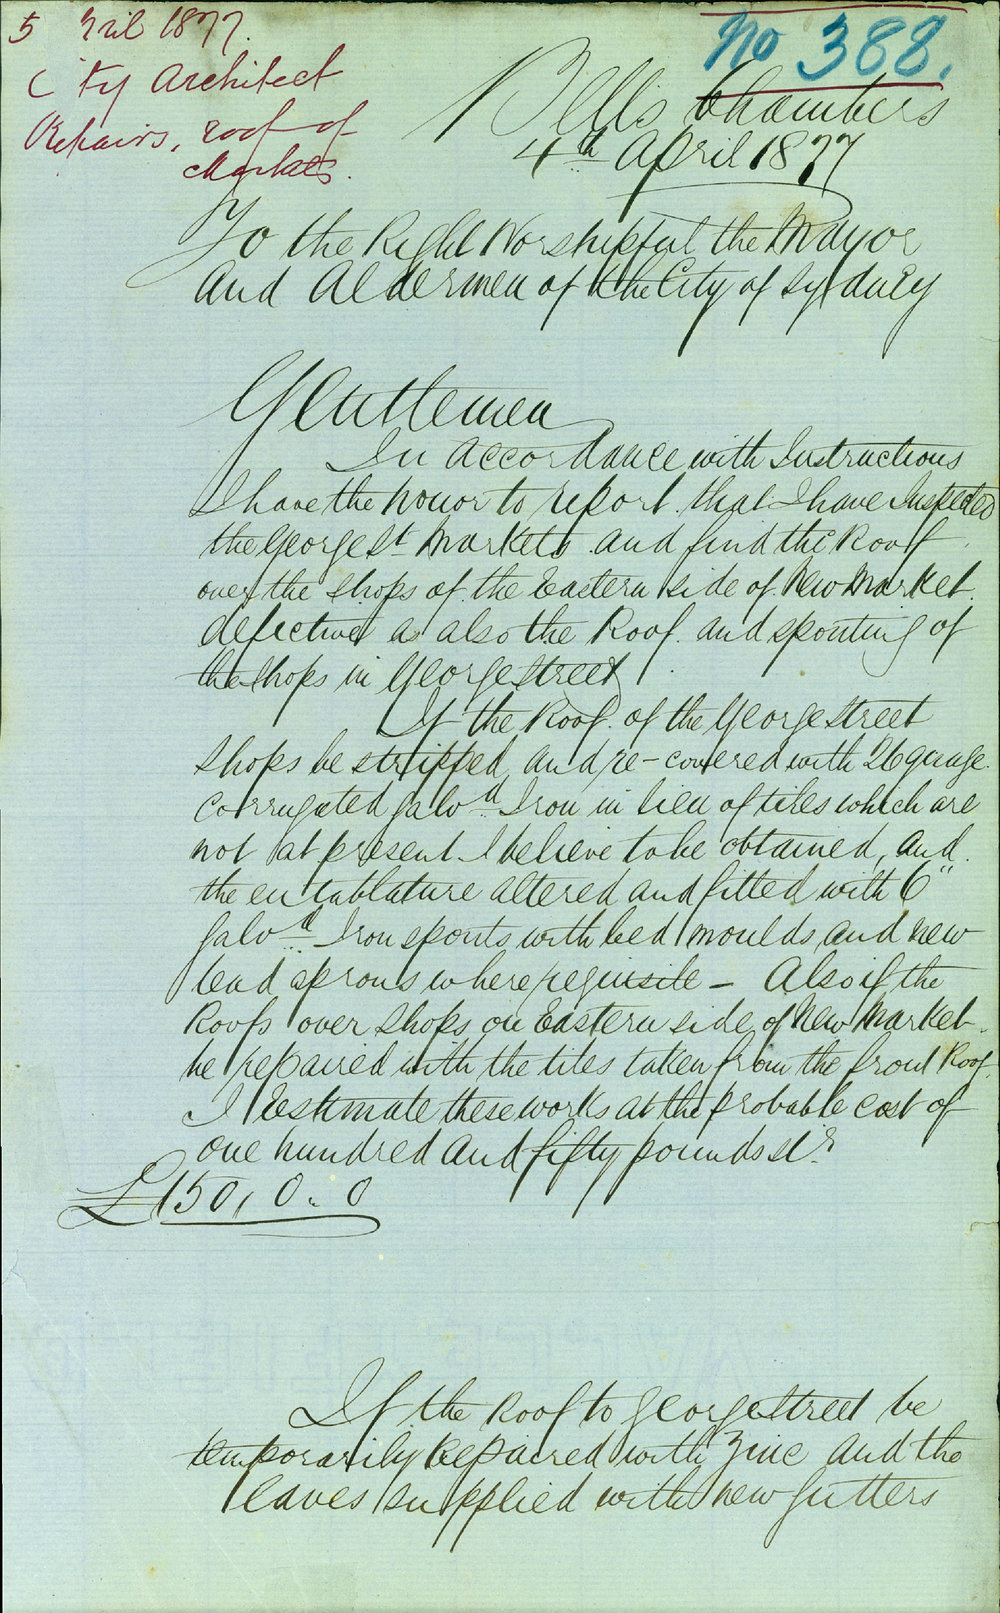 5 April 1877.
City Architect
Repairs, roof of
Markets.
No 388.
Bell's Chambers
4th April 1877
To the Right Worshipful the Mayor
and Aldermen of the City of Sydney
Gentlemen
In accordance with Instructions
I have the honor to report that I have Inspected
the George St Markets and find the Roof
over the shops of the Eastern side of New Market
defective as also the Roof and spouting of
the shops in George Street
If the Roof of the George Street
shops be stripped and re-covered with 26 gauge
corrugated galvd Iron in lieu of tiles which are
not at present I believe to be obtained, and
the entablature altered and fitted with 6"
galvd Iron spouts with bed moulds and new
lead aprons where requisite - Also if the
Roofs over shops on Eastern side of New Market
be repaired with the tiles taken from the front Roof
I Estimate these works at the probable cost of
one hundred and fifty pounds str
£150, 0. 0
If the Roof to George Street be
temporarily Repaired with Zinc and the
eaves supplied with new gutters